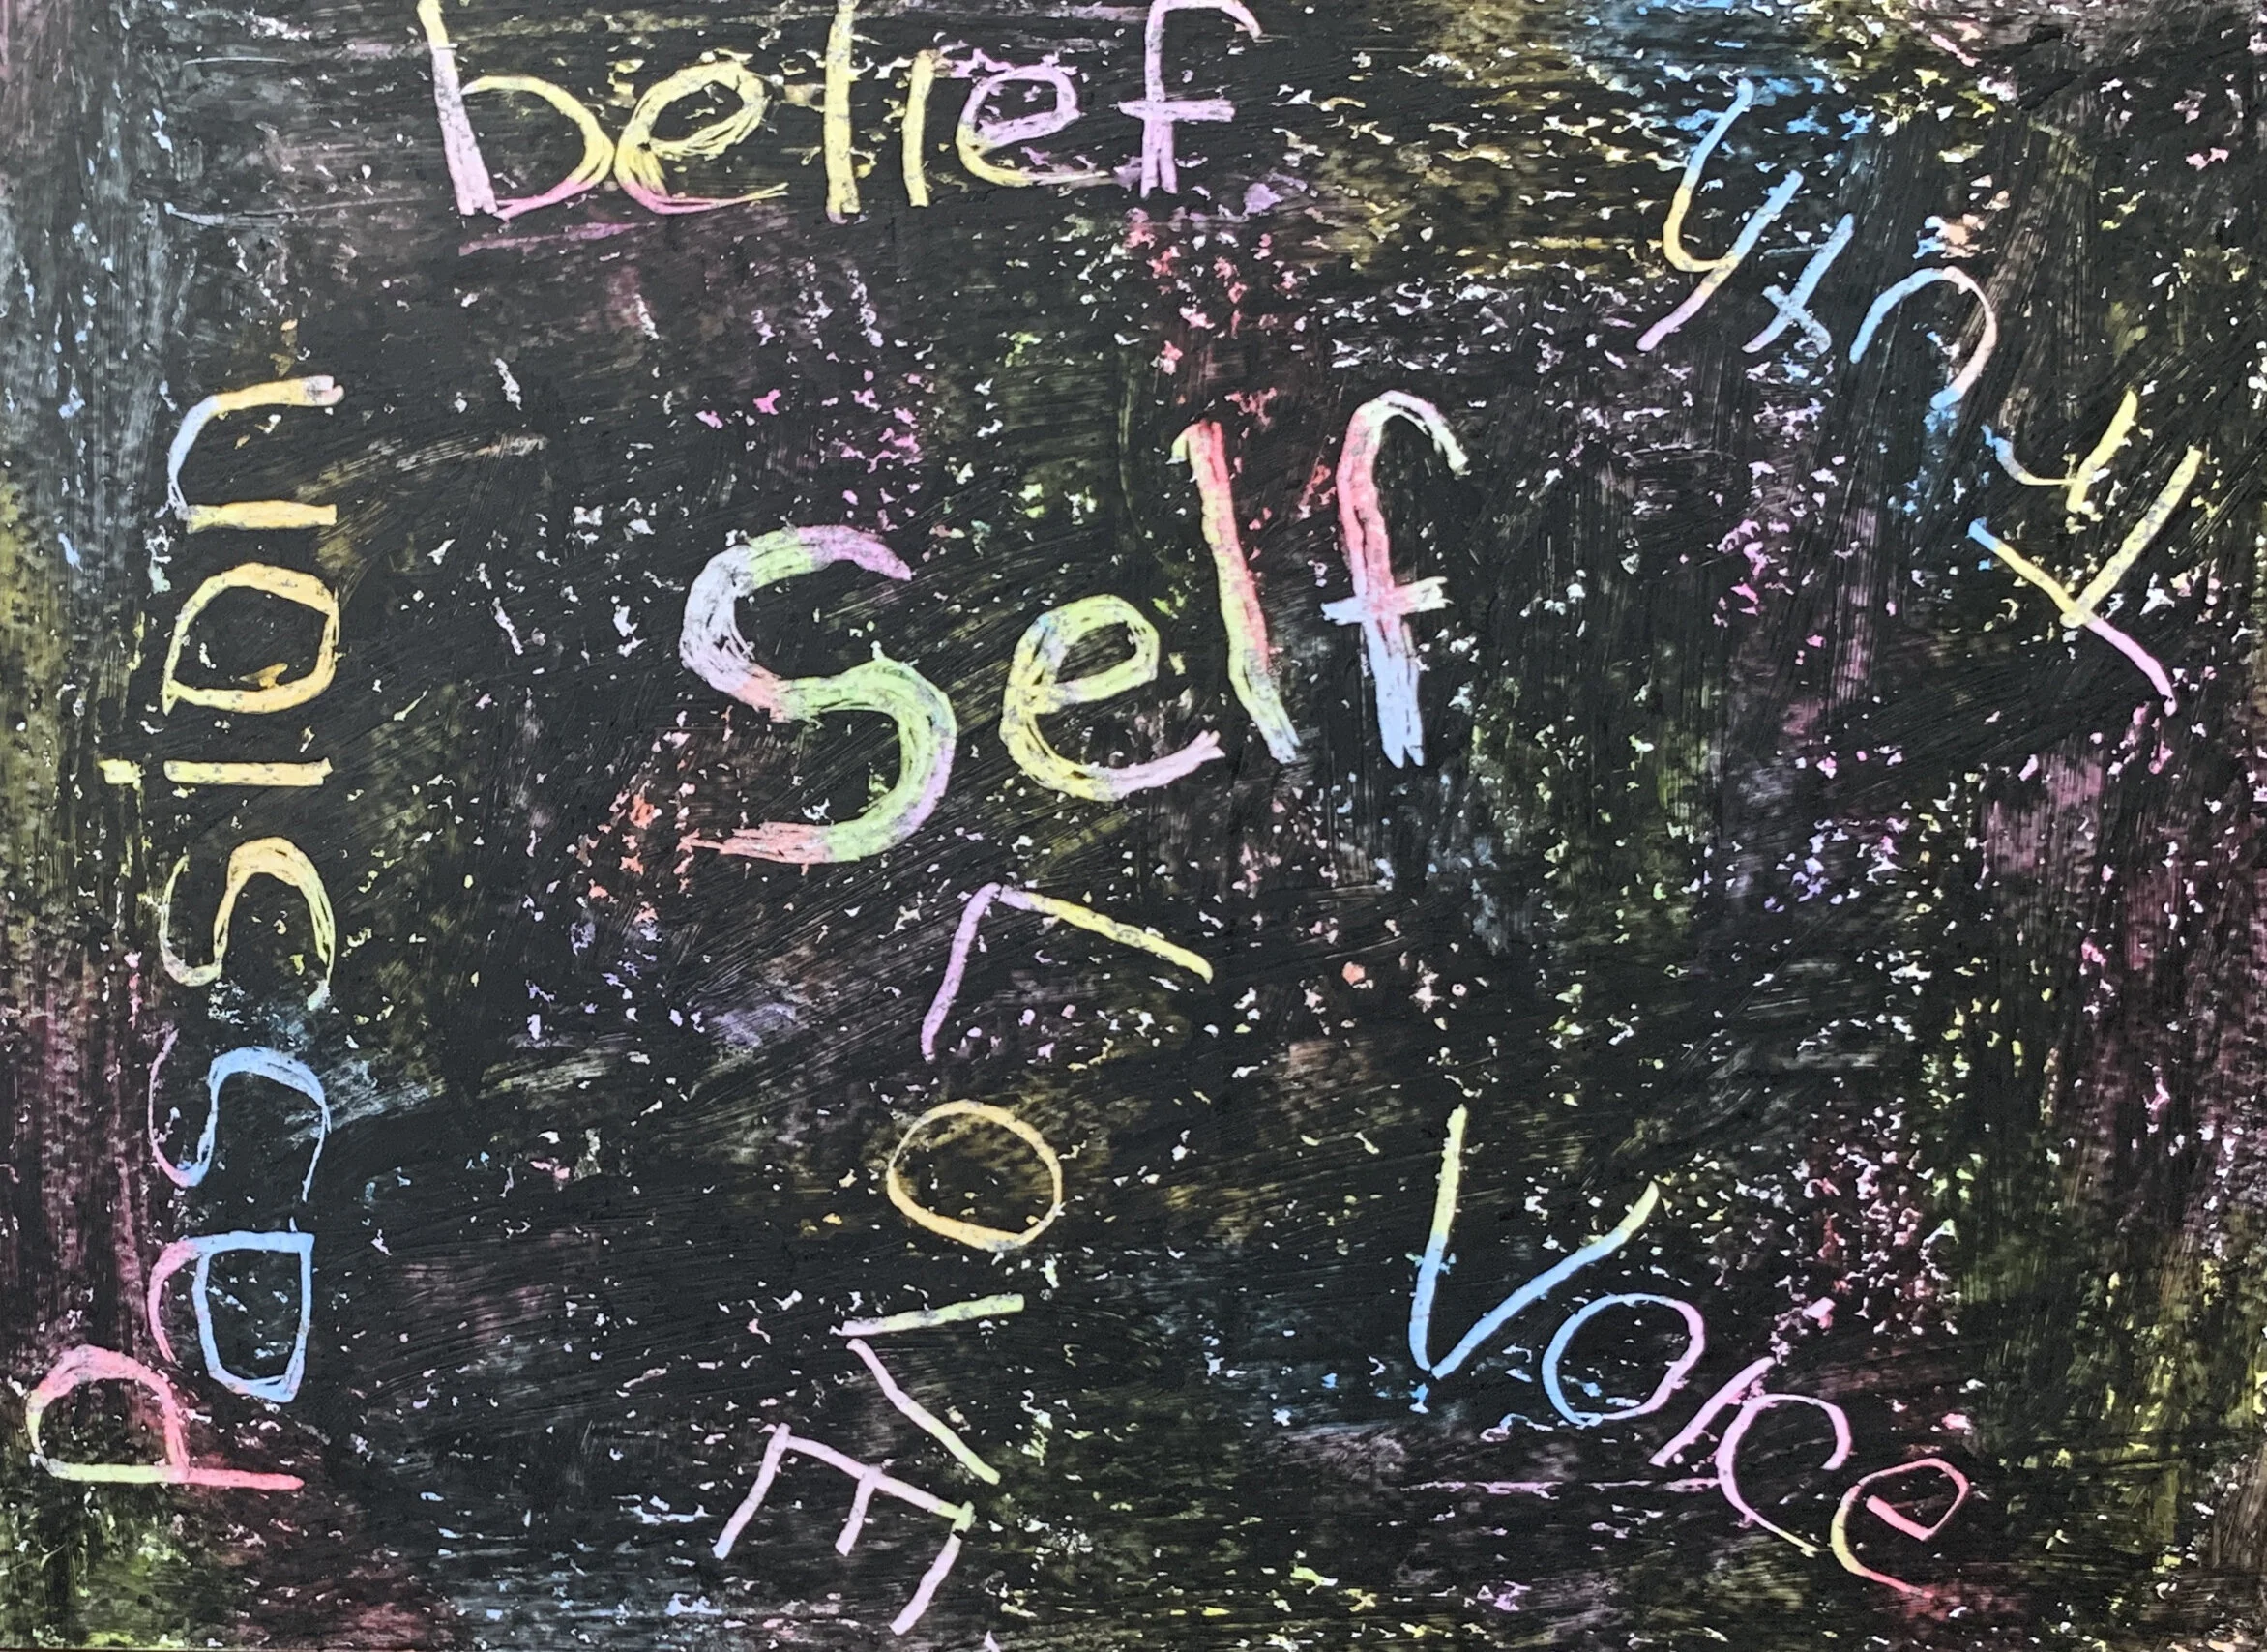 belief
Truth
Self
passion
LOVE
Voice